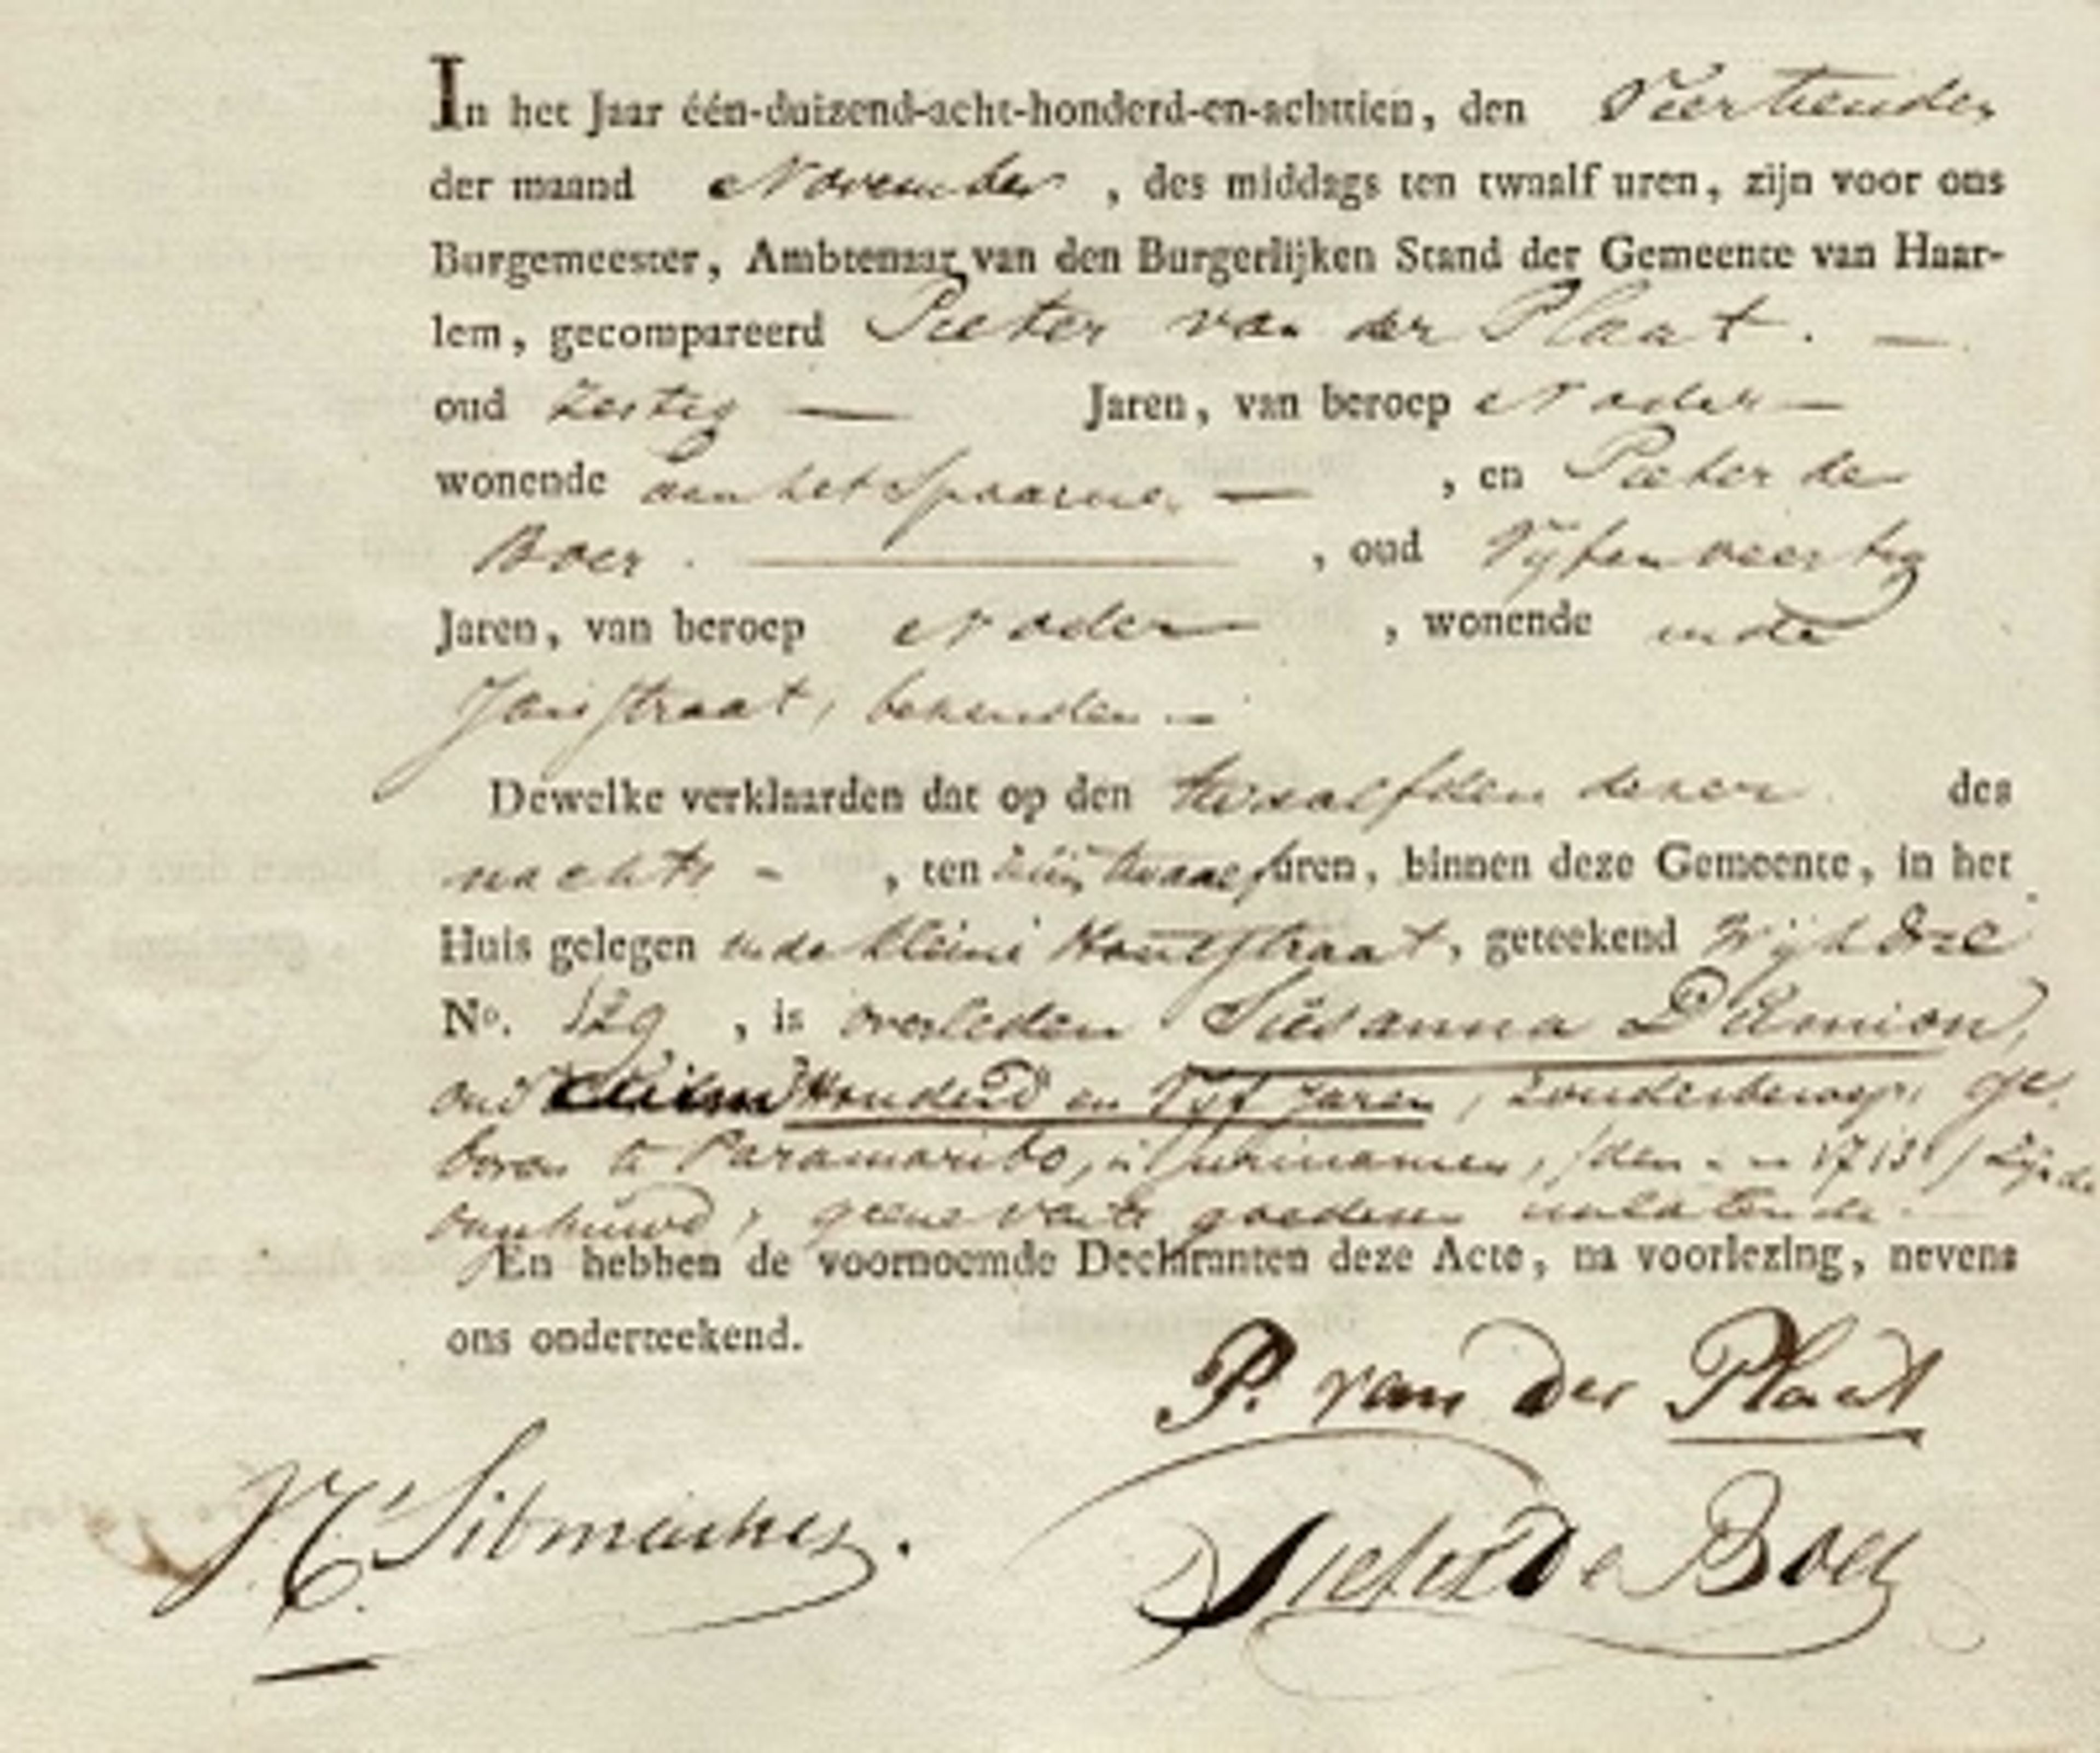 In het Jaar één-duizend-acht-honderd-en-achttien, den Veertienden
der maand November, des middags ten twaalf uren, zijn voor ons
Burgemeester, Ambtenaar van den Burgerlijken Stand der Gemeente van Haar-
lem, gecompareerd Pieter van der Plaat. —
oud Zestig — Jaren, van beroep Noder —
wonende aan het Spaarne. — , en Pieter de
Boer. — , oud Vijfenveertig
Jaren, van beroep Noder — , wonende in de
Jansstraat, bekenden —
Dewelke verklaarden dat op den twaalfden dezer des
nachts - , ten twaalf uren, binnen deze Gemeente, in het
Huis gelegen in de kleine Houtstraat, geteekend Wijk drie
No. 129 , is overleden Susanna Dumion,
oud Honderd en Vijf Jaren, zonder beroep, ge-
boren te Paramaribo, in Surinamen, /den - - 1713/ zijnde
ongehuwd, geene vaste goederen nalatende. —
En hebben de voornoemde Declaranten deze Acte, na voorlezing, nevens
ons onderteekend.
P. van der Plaat
Sibmacher.
Pieter De Boer